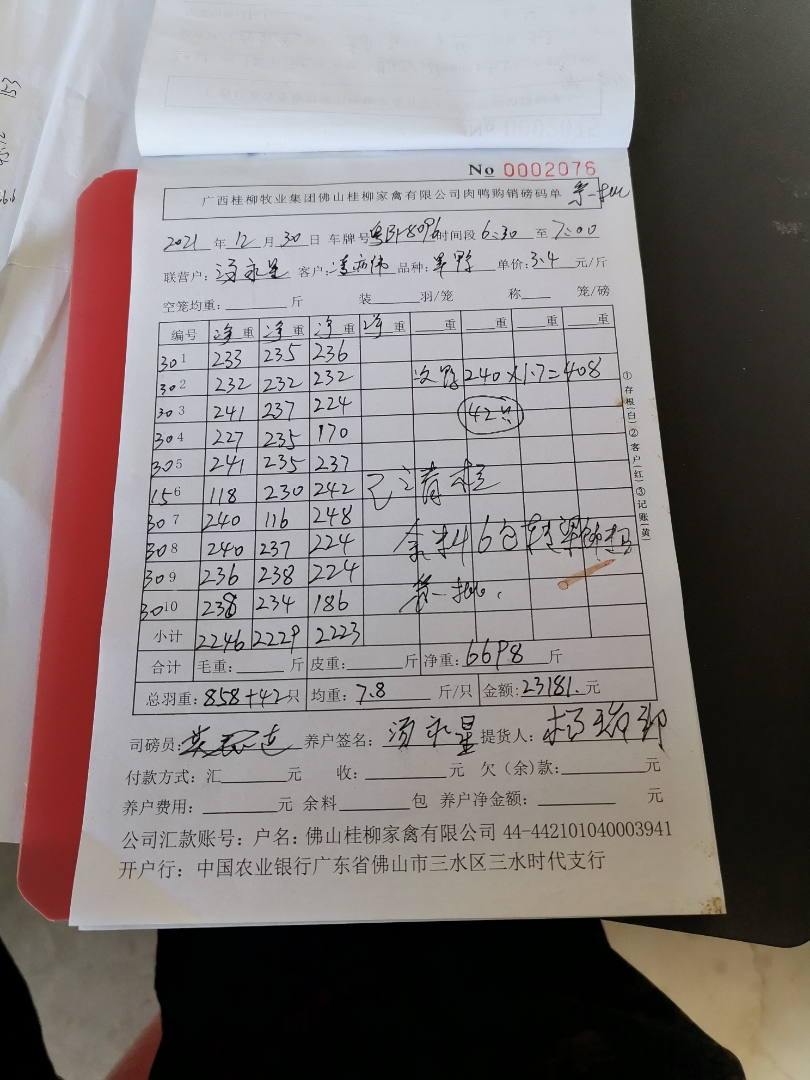 No 0002076
广西桂柳牧业集团佛山桂柳家禽有限公司肉鸭购销磅码单 第一批
2021 年 12 月 30 日 车牌号 时间段 6:30 至 7:00
联营户: 汤永星 客户: 品种: 单价: 3.4 元/斤
空笼均重: 斤 装 羽/笼 称 笼/磅
编号 净重 净重 净重 净重 重 重 重 重
30 1 233 235 236
30 2 232 232 232 次鸭240×1.7=408
30 3 241 237 224 42只
30 4 227 235 170
30 5 241 235 237
15 6 118 230 242 已清栏
30 7 240 116 248
30 8 240 237 224 余料6包
30 9 236 238 224
30 10 238 234 186 第一批.
小计 2246 2229 2223
合计 毛重: 斤 皮重: 斤 净重: 6698 斤
总羽重: 858+42 只 均重: 7.8 斤/只 金额: 23181. 元
司磅员: 养户签名: 汤永星 提货人:
付款方式: 汇 元 收: 元 欠(余)款: 元
养户费用: 元 余料 包 养户净金额: 元
公司汇款账号: 户名: 佛山桂柳家禽有限公司 44-442101040003941
开户行: 中国农业银行广东省佛山市三水区三水时代支行
①存根(白)②客户(红)③记账(黄)